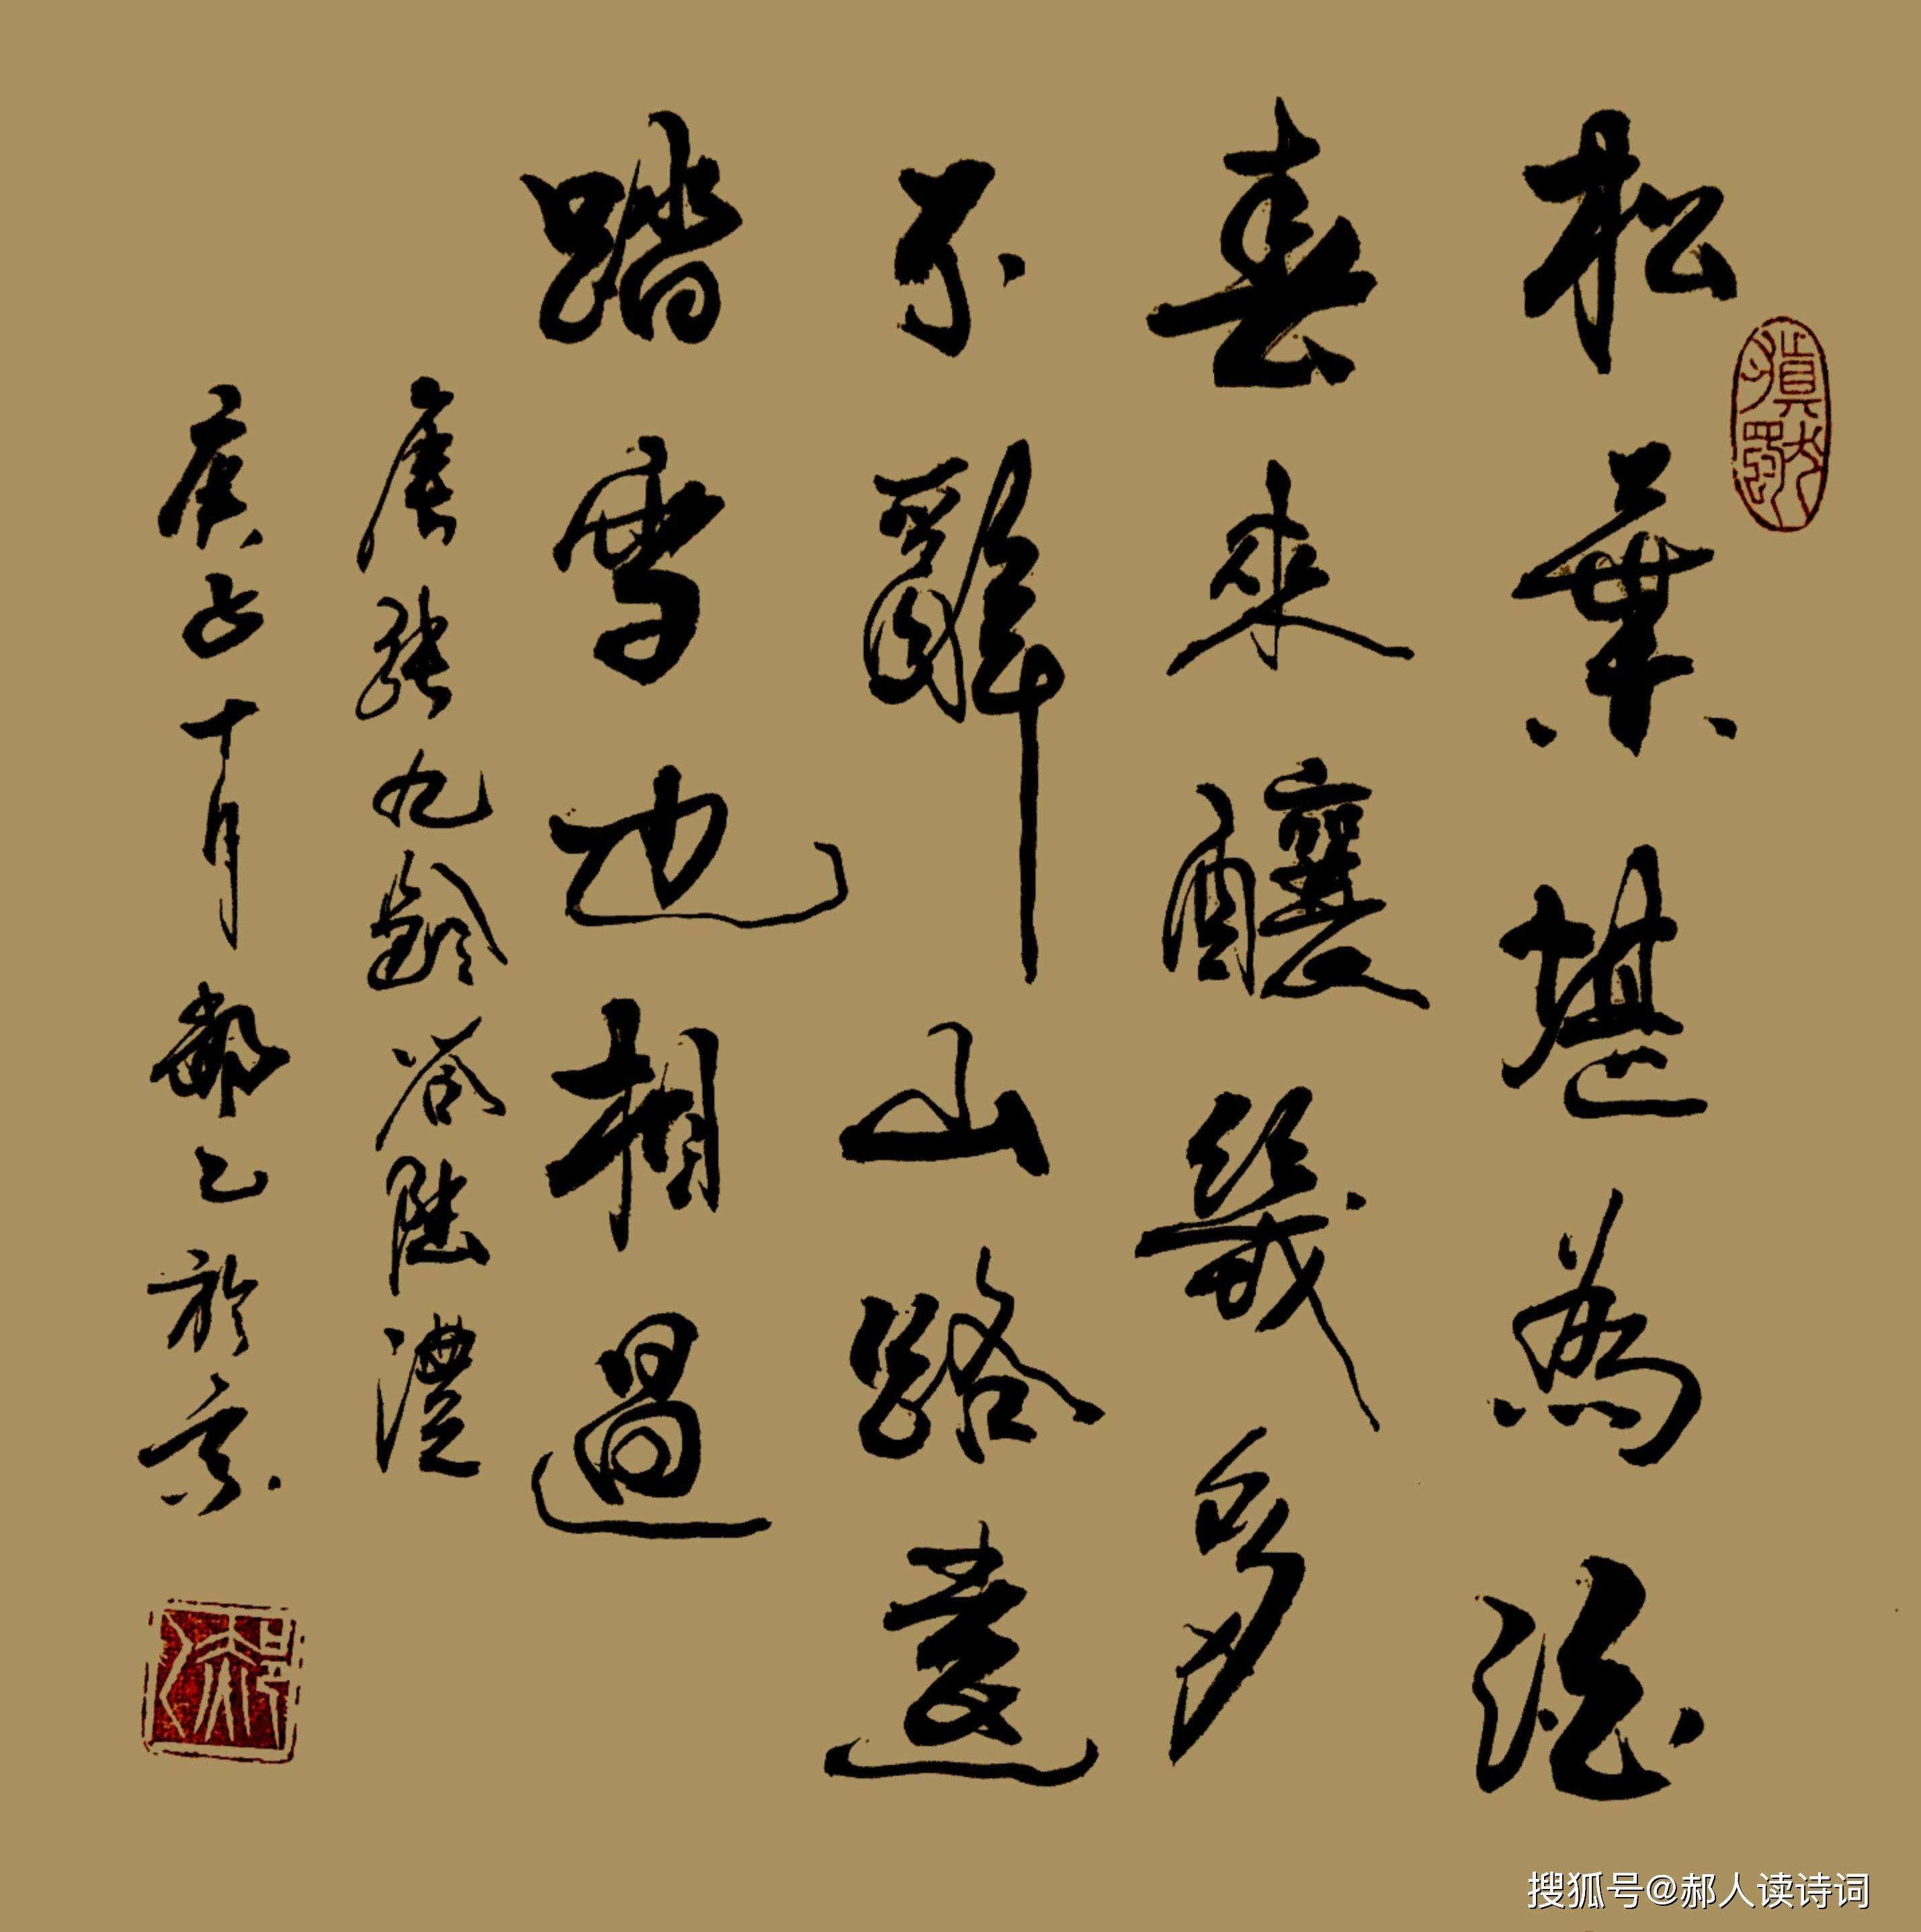 松葉堪為酒
春來釀幾多
不辭山路遠
踏雪也相過
唐張九齡答陸澧
庚子十月郝乙於京
搜狐号@郝人读诗词